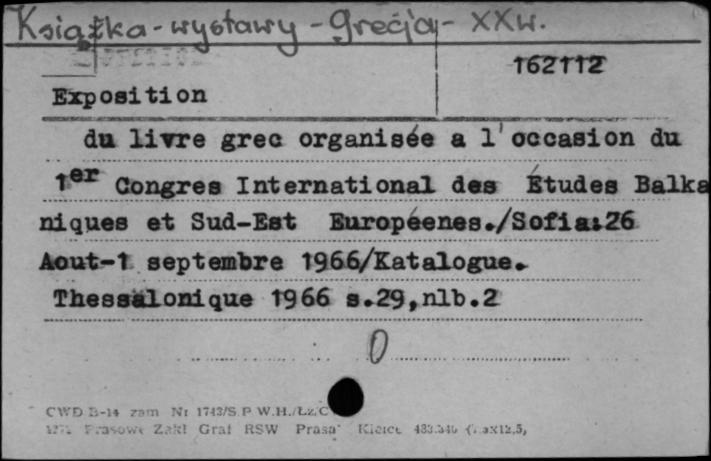 Książka - wystawy - Grecja - XXw.
162112
Exposition
du livre grec organisée a l'occasion du
1er Congres International des Études Balka
niques et Sud-Est Européenes./Sofia:26
Aout-1 septembre 1966/Katalogue.
Thessalonique 1966 s.29,nlb.2
0
CWD B-14 zam Nr 1743/S P W.H./Łż.C
Prasowe Zakł Graf RSW "Prasa" Kielce